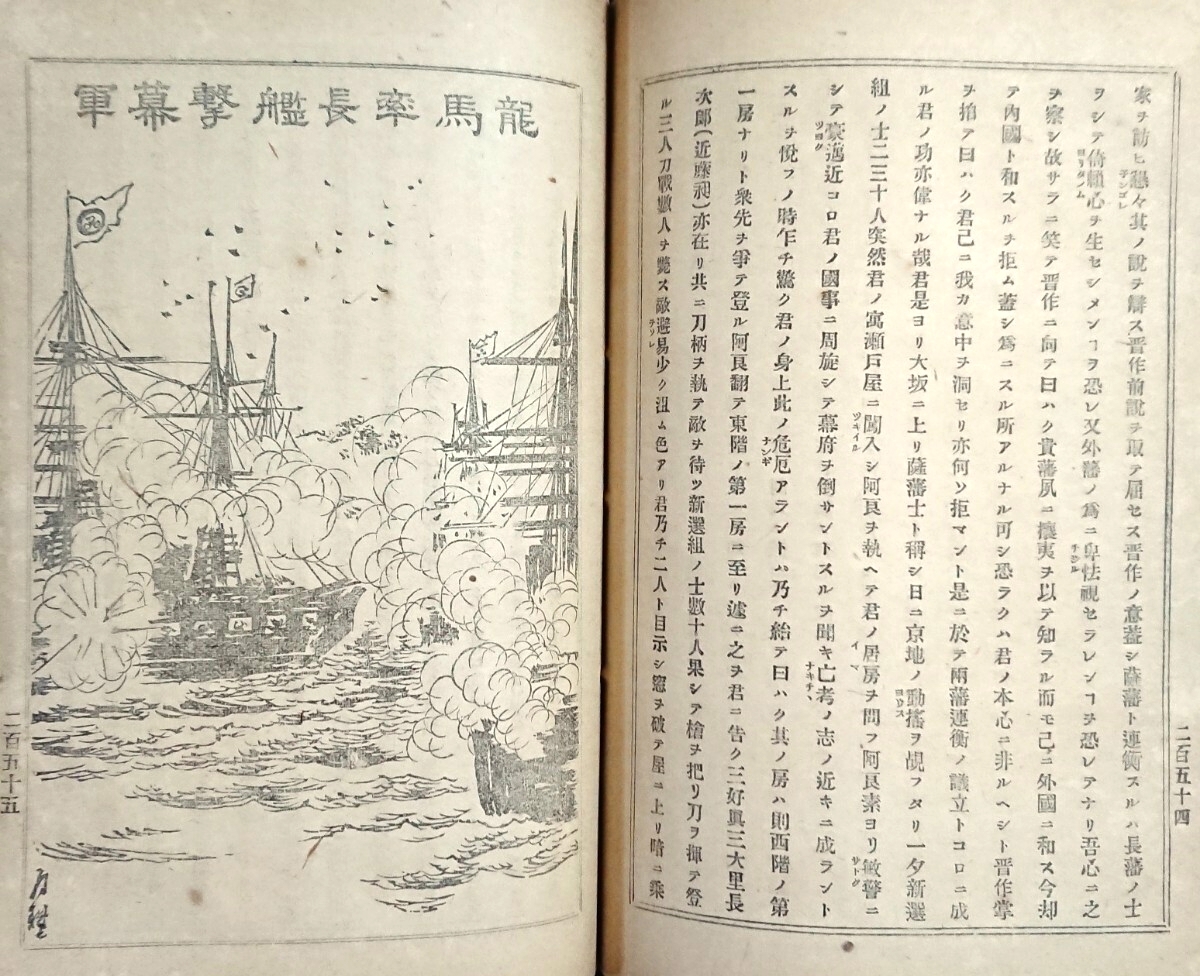 家ヲ訪ヒ懇々其ノ說ヲ辯ス晋作前說ヲ取テ屈セス晋作ノ意蓋シ薩藩ト連衡スルハ長藩ノ士
ヲシテ倚賴心ヲ生セシメンヿヲ恐レ又外藩ノ爲ニ卑怯視セラレンヿヲ恐レテナリ吾心ニ之
ヲ察シ故サラニ笑テ晋作ニ向テ曰ハク貴藩夙ニ攘夷ヲ以テ知ラル而モ己ニ外國ニ和ス今却
テ內國ト和スルヲ拒ム蓋シ爲ニスル所アルナル可シ恐ラクハ君ノ本心ニ非ルヘシト晋作掌
ヲ拍テ曰ハク君己ニ我カ意中ヲ洞セリ亦何ソ拒マント是ニ於テ兩藩連衡ノ議立トコロニ成
ル君ノ功亦偉ナル哉君是ヨリ大坂ニ上リ薩藩士ト稱シ日ニ京地ノ動搖ヲ覘フタリ一夕新選
組ノ士二三十人突然君ノ寓瀨戸屋ニ闖入シ阿良ヲ執ヘテ君ノ居房ヲ問フ阿良素ヨリ敏警ニ
シテ豪邁近コロ君ノ國事ニ周旋シテ幕府ヲ倒サントスルヲ聞キ亡考ノ志ノ近キニ成ラント
スルヲ悅フノ時乍チ驚ク君ノ身上此ノ危厄アラントハ乃チ紿テ曰ハク其ノ房ハ則西階ノ第
一房ナリト衆先ヲ爭テ登ル阿良翻テ東階ノ第一房ニ至リ遽ニ之ヲ君ニ告ク三好眞三大里長
次郎(近藤昶)亦在リ共ニ刀柄ヲ執テ敵ヲ待ツ新選組ノ士數十人果シテ槍ヲ把リ刀ヲ揮テ登
ル三人刀戰數人ヲ斃ス敵避易少ク沮ム色アリ君乃チ二人ト目示シ窓ヲ破テ屋ニ上リ暗ニ乘
二百五十四
龍馬率長艦擊幕軍
二百五十五